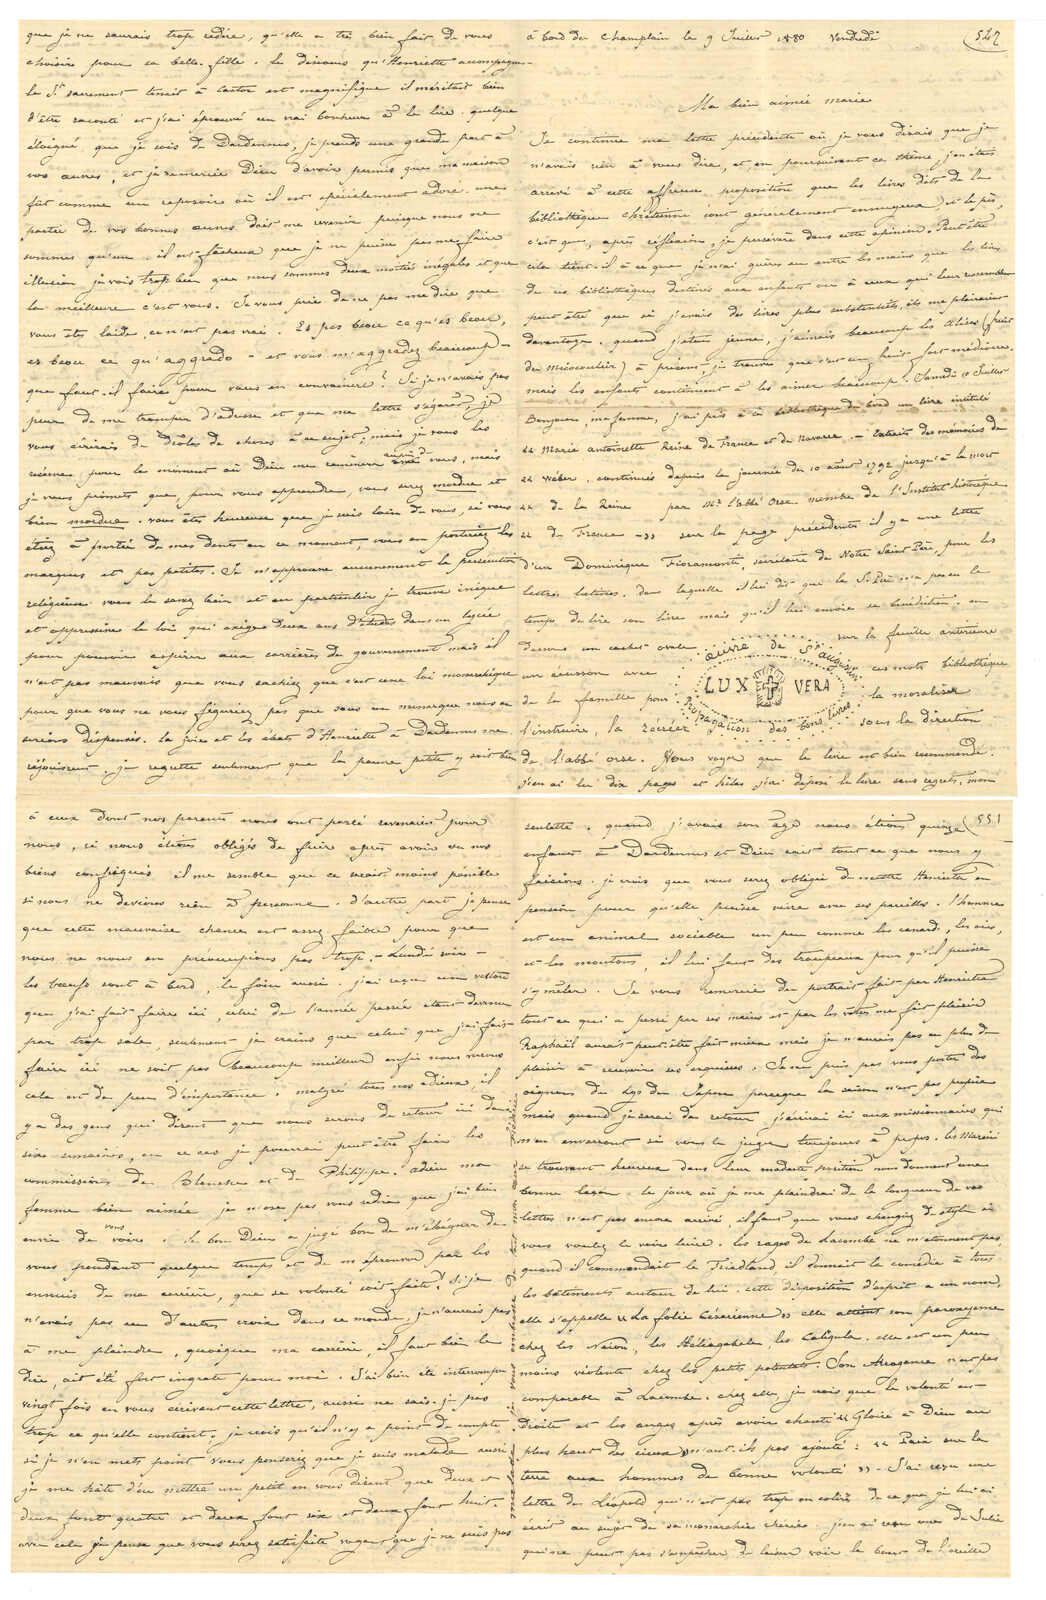 que je ne saurais trop redire, qu'elle a très bien fait de vous
choisir pour sa belle-fille. Le discours qu'Henriette accompagne
le St. sacrement tenait à Castor est magnifique il méritait bien
d'être raconté et j'ai éprouvé un vrai bonheur à le lire. quelque
éloigné que je sois de Dardennes, je prends une grande part à
vos œuvres, et je remercie Dieu d'avoir permis que ma maison
fût comme un reposoir où il est spécialement adoré. une
partie de vos bonnes œuvres doit me revenir puisque nous ne
sommes qu'un. il est fâcheux que je ne puisse pas me faire
illusion, je vois trop bien que nous sommes deux moitiés inégales et que
la meilleure c'est vous. Je vous prie de ne pas me dire que
vous êtes laide, ce n'est pas vrai. Es pas beou ce qu'es beou,
es beou ce qu'aggrado - et vous m'aggradez beaucoup -
que faut-il faire pour vous en convaincre? Si je n'avais pas
peur de me tromper d'adresse et que ma lettre s'égarât, je
vous écrirais de drôles de choses à ce sujet, mais je vous les
réserve pour le moment où Dieu me ramènera auprès de vous, mais
je vous promets que, pour vous apprendre, vous serez mordue et
bien mordue. vous êtes heureuse que je sois loin de vous, si vous
étiez à portée de mes dents en ce moment, vous en porteriez les
marques et pas petites. Je n'approuve aucunement la persécution
religieuse vous le savez bien et en particulier je trouve inique
et oppressive la loi qui exige deux ans d'études dans un lycée
pour pouvoir aspirer aux carrières du gouvernement mais il
n'est pas mauvais que vous sachiez que c'est une loi monarchique
pour que vous ne vous figuriez pas que sous un monarque nous en
serions dispensés. la joie et les ébats d'Henriette à Dardennes me
réjouissent. je regrette seulement que la pauvre petite y soit bien
à bord du Champlain le 9 Juillet 1880 Vendredi
547
Ma bien aimée marie
Je continue ma lettre précédente où je vous disais que je
n'avais rien à vous dire, et, en poursuivant ce thème, j'en étais
arrivé à cette affreuse proposition que les livres dits de la
bibliothèque chrétienne sont généralement ennuyeux, et le pis,
c'est que, après réflexion, je persévère dans cette opinion. Peut-être
cela tient-il à ce que je n'ai guère eu entre les mains que les livres
de ces bibliothèques destinés aux enfants ou à ceux qui leur ressemblent
peut être que si j'avais des livres plus substantiels, ils me plairaient
davantage. quand j'étais jeune, j'aimais beaucoup les Alises (fruit
du Micocoulier) à présent, je trouve que c'est un fruit fort médiocre.
mais les enfants continuent à les aimer beaucoup. Samedi 10 Juillet
Bonjour, ma femme, j'ai pris à la bibliothèque du bord un livre intitulé
« Marie Antoinette Reine de France et de Navarre. - Extraits des mémoires de
« Wéber, continués depuis la journée du 10 août 1792 jusqu'à la mort
« de la Reine par Mr. l'abbé Orse membre de l'Institut historique
« de France - » sur la page précédente il y a une lettre
d'un Dominique Fioramonti, secrétaire de Notre Saint Père, pour les
lettres latines, dans laquelle il lui dit que le St. Père n'a pas eu le
temps de lire son livre mais qu'il lui envoie sa bénédiction. au
dessous un cachet ovale sur la feuille antérieure
un écusson avec ces mots bibliothèque
œuvre de St. augustin
LUX VERA
Propagation des bons livres
de la famille pour la moraliser
l'instruire, la récréer sous la direction
de l'abbé Orse. Vous voyez que le livre est bien recommandé.
j'en ai lu dix pages et hélas j'ai déposé le livre sans regrets, mon
à ceux dont nos parents nous ont parlé revenaient pour
nous, si nous étions obligés de fuir après avoir vu nos
biens confisqués il me semble que ce serait moins pénible
si nous ne devions rien à personne. d'autre part je pense
que cette mauvaise chance est assez faible pour que
nous ne nous en préoccupions pas trop. - Lundi soir -
les bœufs sont à bord, le foin aussi. j'ai reçu un veston
que j'ai fait faire ici, celui de l'année passée étant devenu
par trop sale, seulement je crains que celui que j'ai fait
faire ici ne soit pas beaucoup meilleur enfin nous verrons
cela est de peu d'importance. malgré tous nos adieux, il
y a des gens qui disent que nous serons de retour ici dans
six semaines, en ce cas je pourrai peut-être faire les
commissions de Blanche et de Philippe. adieu ma
femme bien aimée je n'ose pas vous redire que j'ai bien
envie de vous voir. Le bon Dieu a jugé bon de m'éloigner de
vous pendant quelque temps et de m'éprouver par les
ennuis de ma carrière, que sa volonté soit faite! Si je
n'avais pas eu d'autres croix dans ce monde, je n'aurais pas
à me plaindre, quoique ma carrière, il faut bien le
dire, ait été fort ingrate pour moi. J'ai bien été interrompu
vingt fois en vous écrivant cette lettre, aussi ne sais-je pas
trop ce qu'elle contient. je crois qu'il n'y a point de compte
si je n'en mets point vous penserez que je suis malade aussi
je me hâte d'en mettre un petit en vous disant que deux et
deux font quatre et deux font six et deux font huit.
avec cela je pense que vous serez satisfaite voyant que je ne suis pas
551
seulette. quand j'avais son âge nous étions quinze
enfants à Dardennes et Dieu sait tout ce que nous y
faisions. je crois que vous serez obligée de mettre Henriette en
pension pour qu'elle puisse vivre avec ses pareilles. l'homme
est un animal sociable un peu comme les canards, les oies,
et les moutons, il lui faut des troupeaux pour qu'il puisse
s'y mêler. Je vous remercie du portrait fait par Henriette
tout ce qui a passé par ses mains et par les vôtres me fait plaisir
Raphaël aurait peut-être fait mieux mais je n'aurais pas eu plus de
plaisir à recevoir ses esquisses. Je ne puis pas vous porter des
oignons de lys du Japon parceque la saison n'est pas propice
mais quand je serai de retour j'écrirai ici aux missionnaires qui
m'en enverront si vous le jugez toujours à propos. les Marini
se trouvant heureux dans leur modeste position nous donnent une
bonne leçon. le jour où je me plaindrai de la longueur de vos
lettres n'est pas encore arrivé, il faut que vous changiez de style si
vous voulez le voir luire. les rages de Lacombe ne m'étonnent pas
quand il commandait le Friedland il donnait la comédie à tous
les bâtiments autour de lui. cette disposition d'esprit a un nom,
elle s'appelle « La folie Césarienne » elle atteint son paroxysme
chez les Néron, les Héliogabale, les Caligula. elle est un peu
moins violente chez les petits potentats. Son Arrogance n'est pas
comparable à Lacombe. chez elle, je crois que la volonté est
droite et les anges après avoir chanté « Gloire à Dieu au
plus haut des cieux » n'ont-ils pas ajouté: « Paix sur la
terre aux hommes de bonne volonté » - J'ai reçu une
lettre de Léopold qui n'est pas trop en colère de ce que je lui ai
écrit au sujet de sa monarchie chérie. j'en ai reçu une de Julie
qui ne peut pas s'empêcher de laisser voir le bout de l'oreille